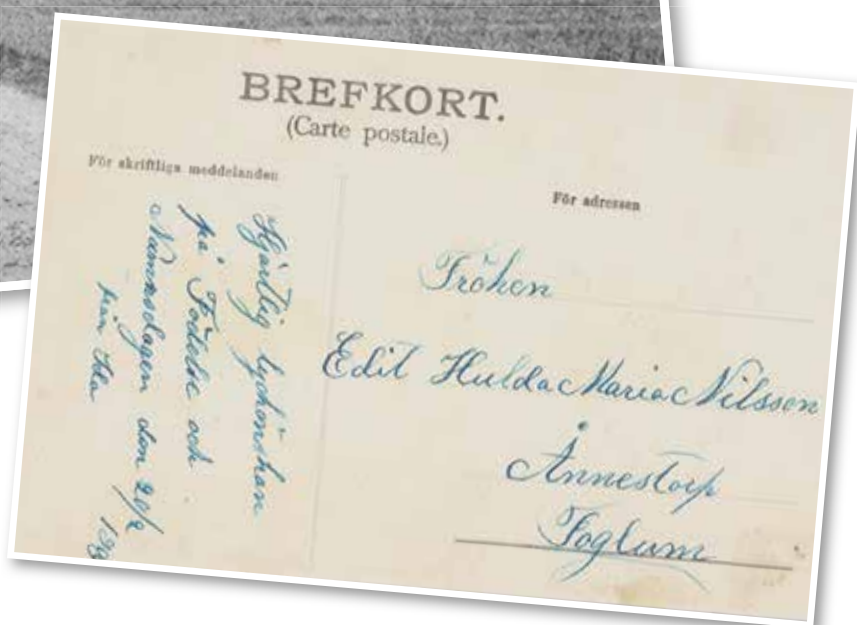 BREFKORT.
(Carte postale.)
För skriftliga meddelanden
Hjärtlig lyckönskan
på Födelse och
Namnsdagen den 20/2
från
För adressen
Fröken
Edit Hulda Maria Nilsson
Annestorp
Foglum